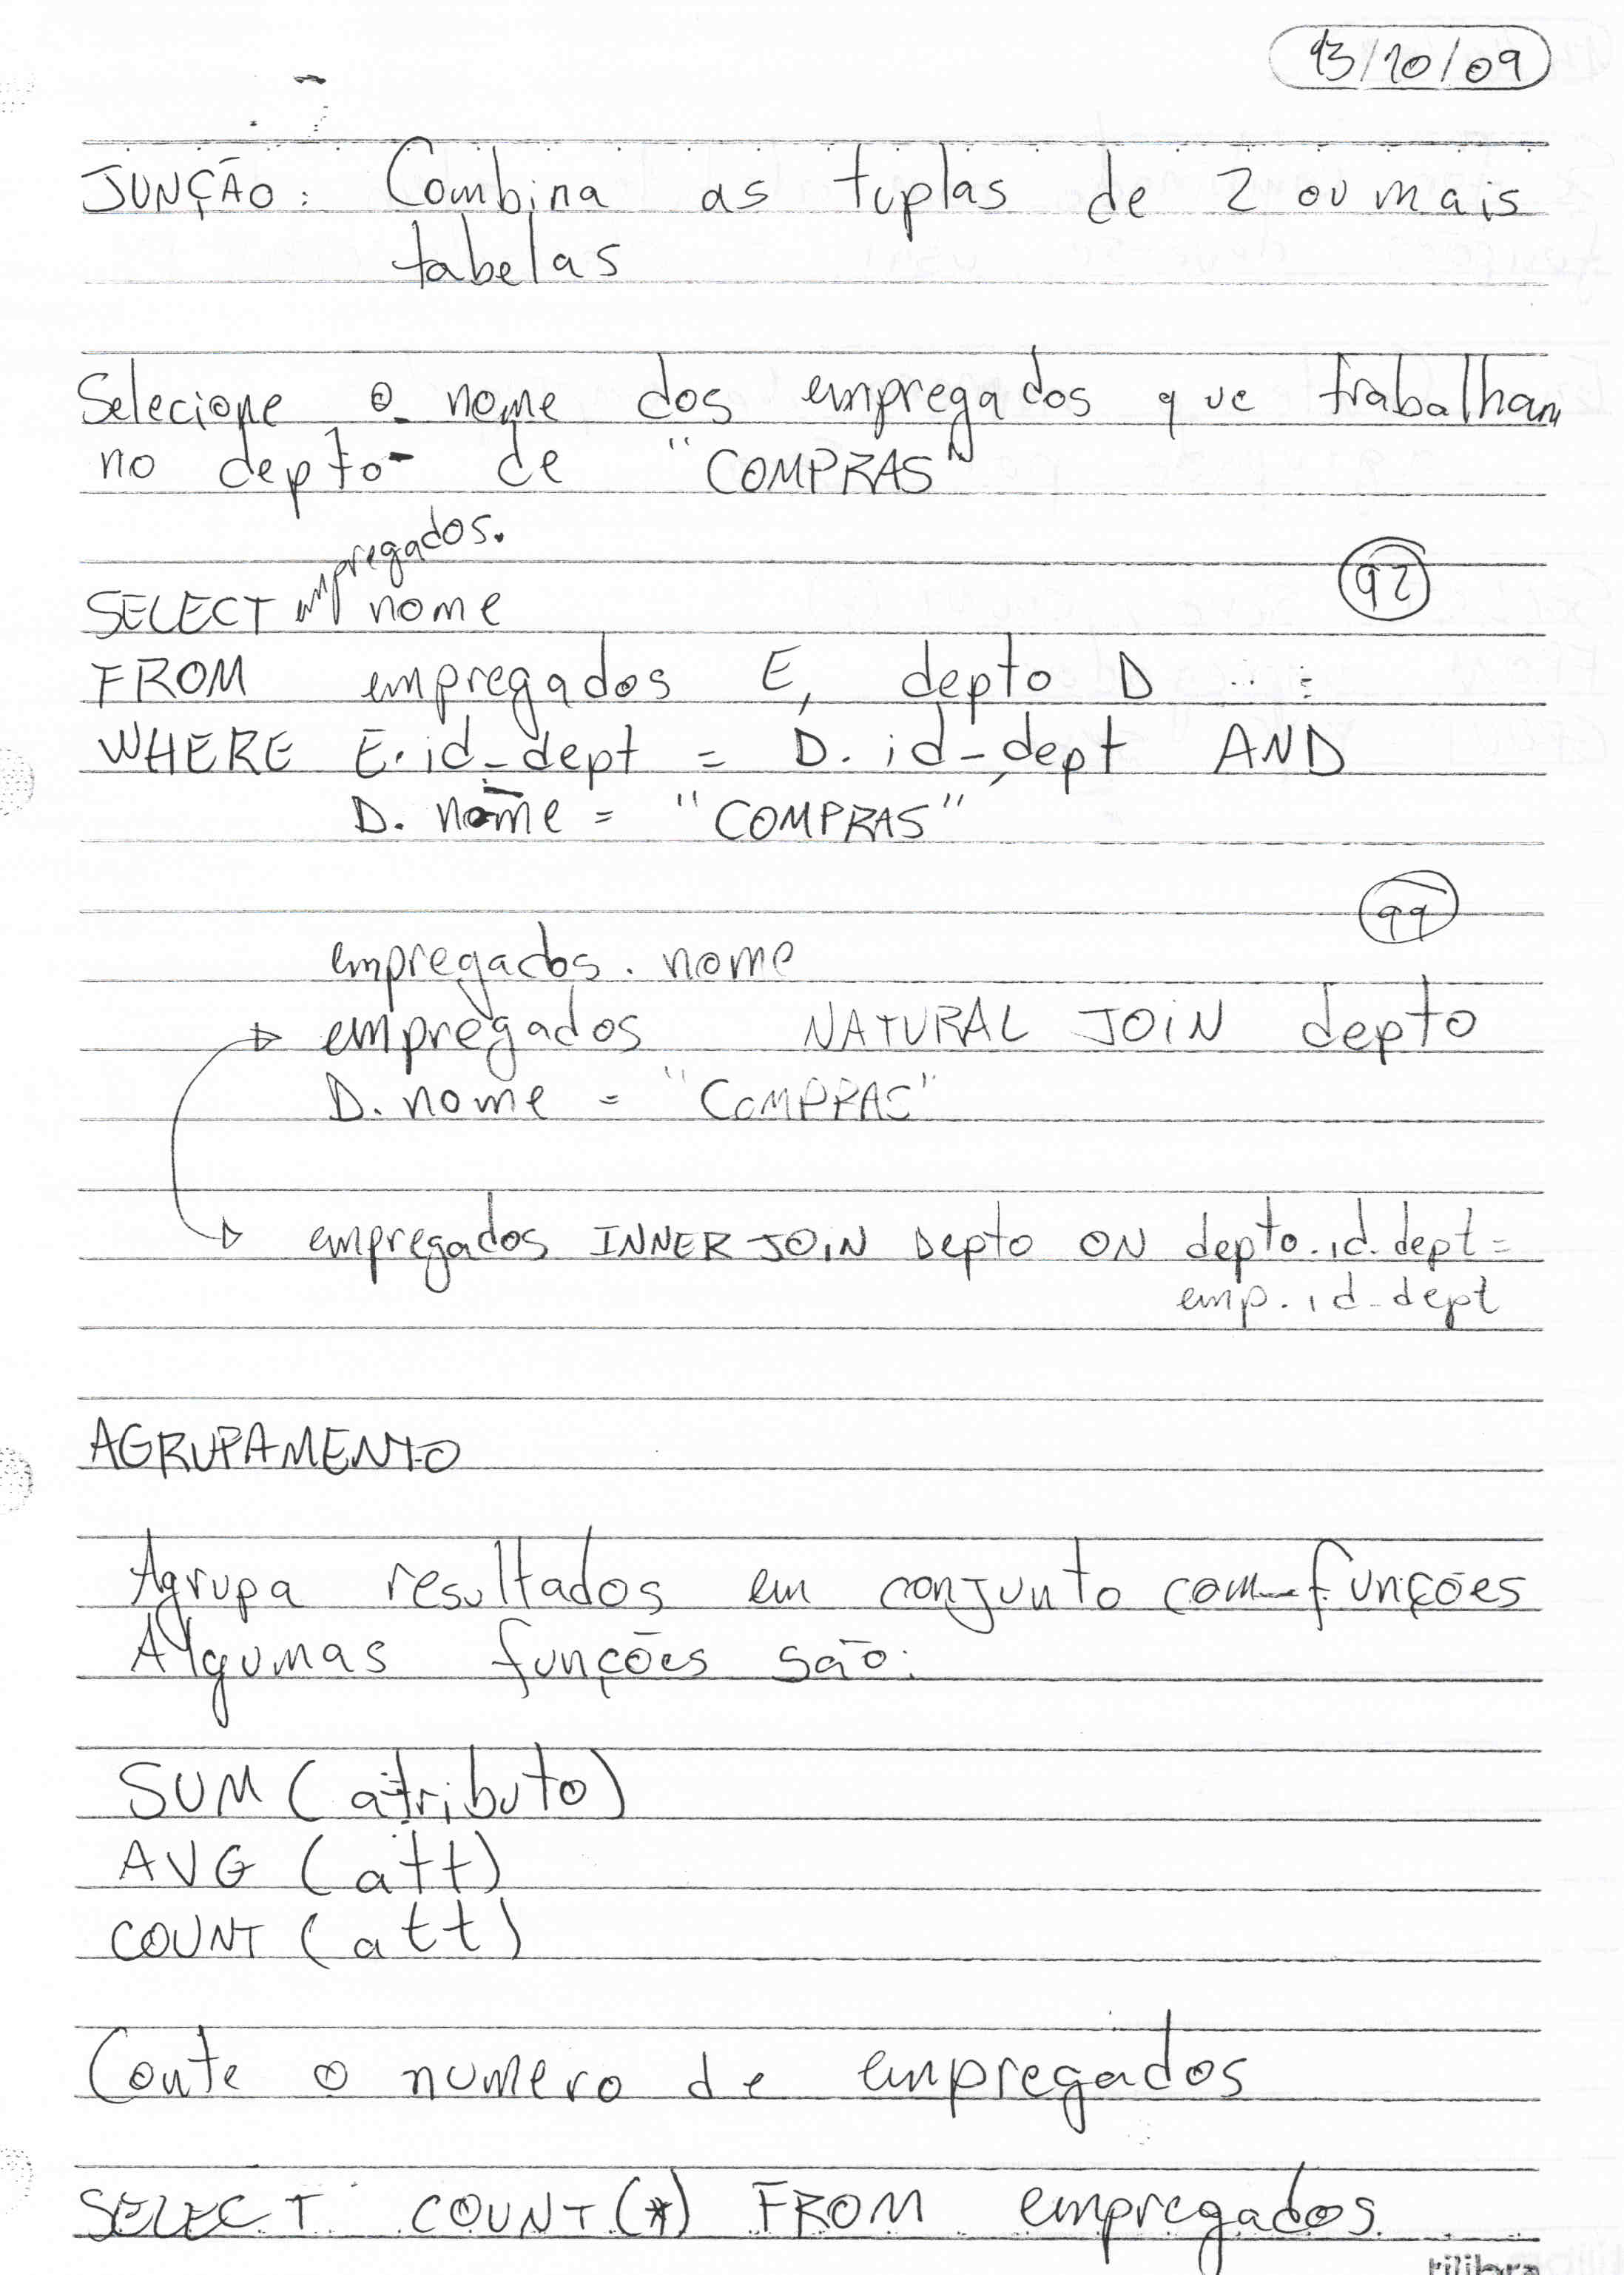 13/10/09
JUNÇÃO: Combina as tuplas de 2 ou mais
tabelas
Selecione o nome dos empregados que trabalham
no depto de "COMPRAS"
empregados.
SELECT nome
92
FROM empregados E, depto D
WHERE E.id_dept = D.id_dept AND
D.nome = "COMPRAS"
99
empregados.nome
empregados NATURAL JOIN depto
D.nome = "COMPRAS"
empregados INNER JOIN Depto ON depto.id_dept =
emp.id_dept
AGRUPAMENTO
Agrupa resultados em conjunto com funções
Algumas funções são:
SUM (atributo)
AVG (att)
COUNT (att)
Conte o numero de empregados
SELECT COUNT(*) FROM empregados
tilibra